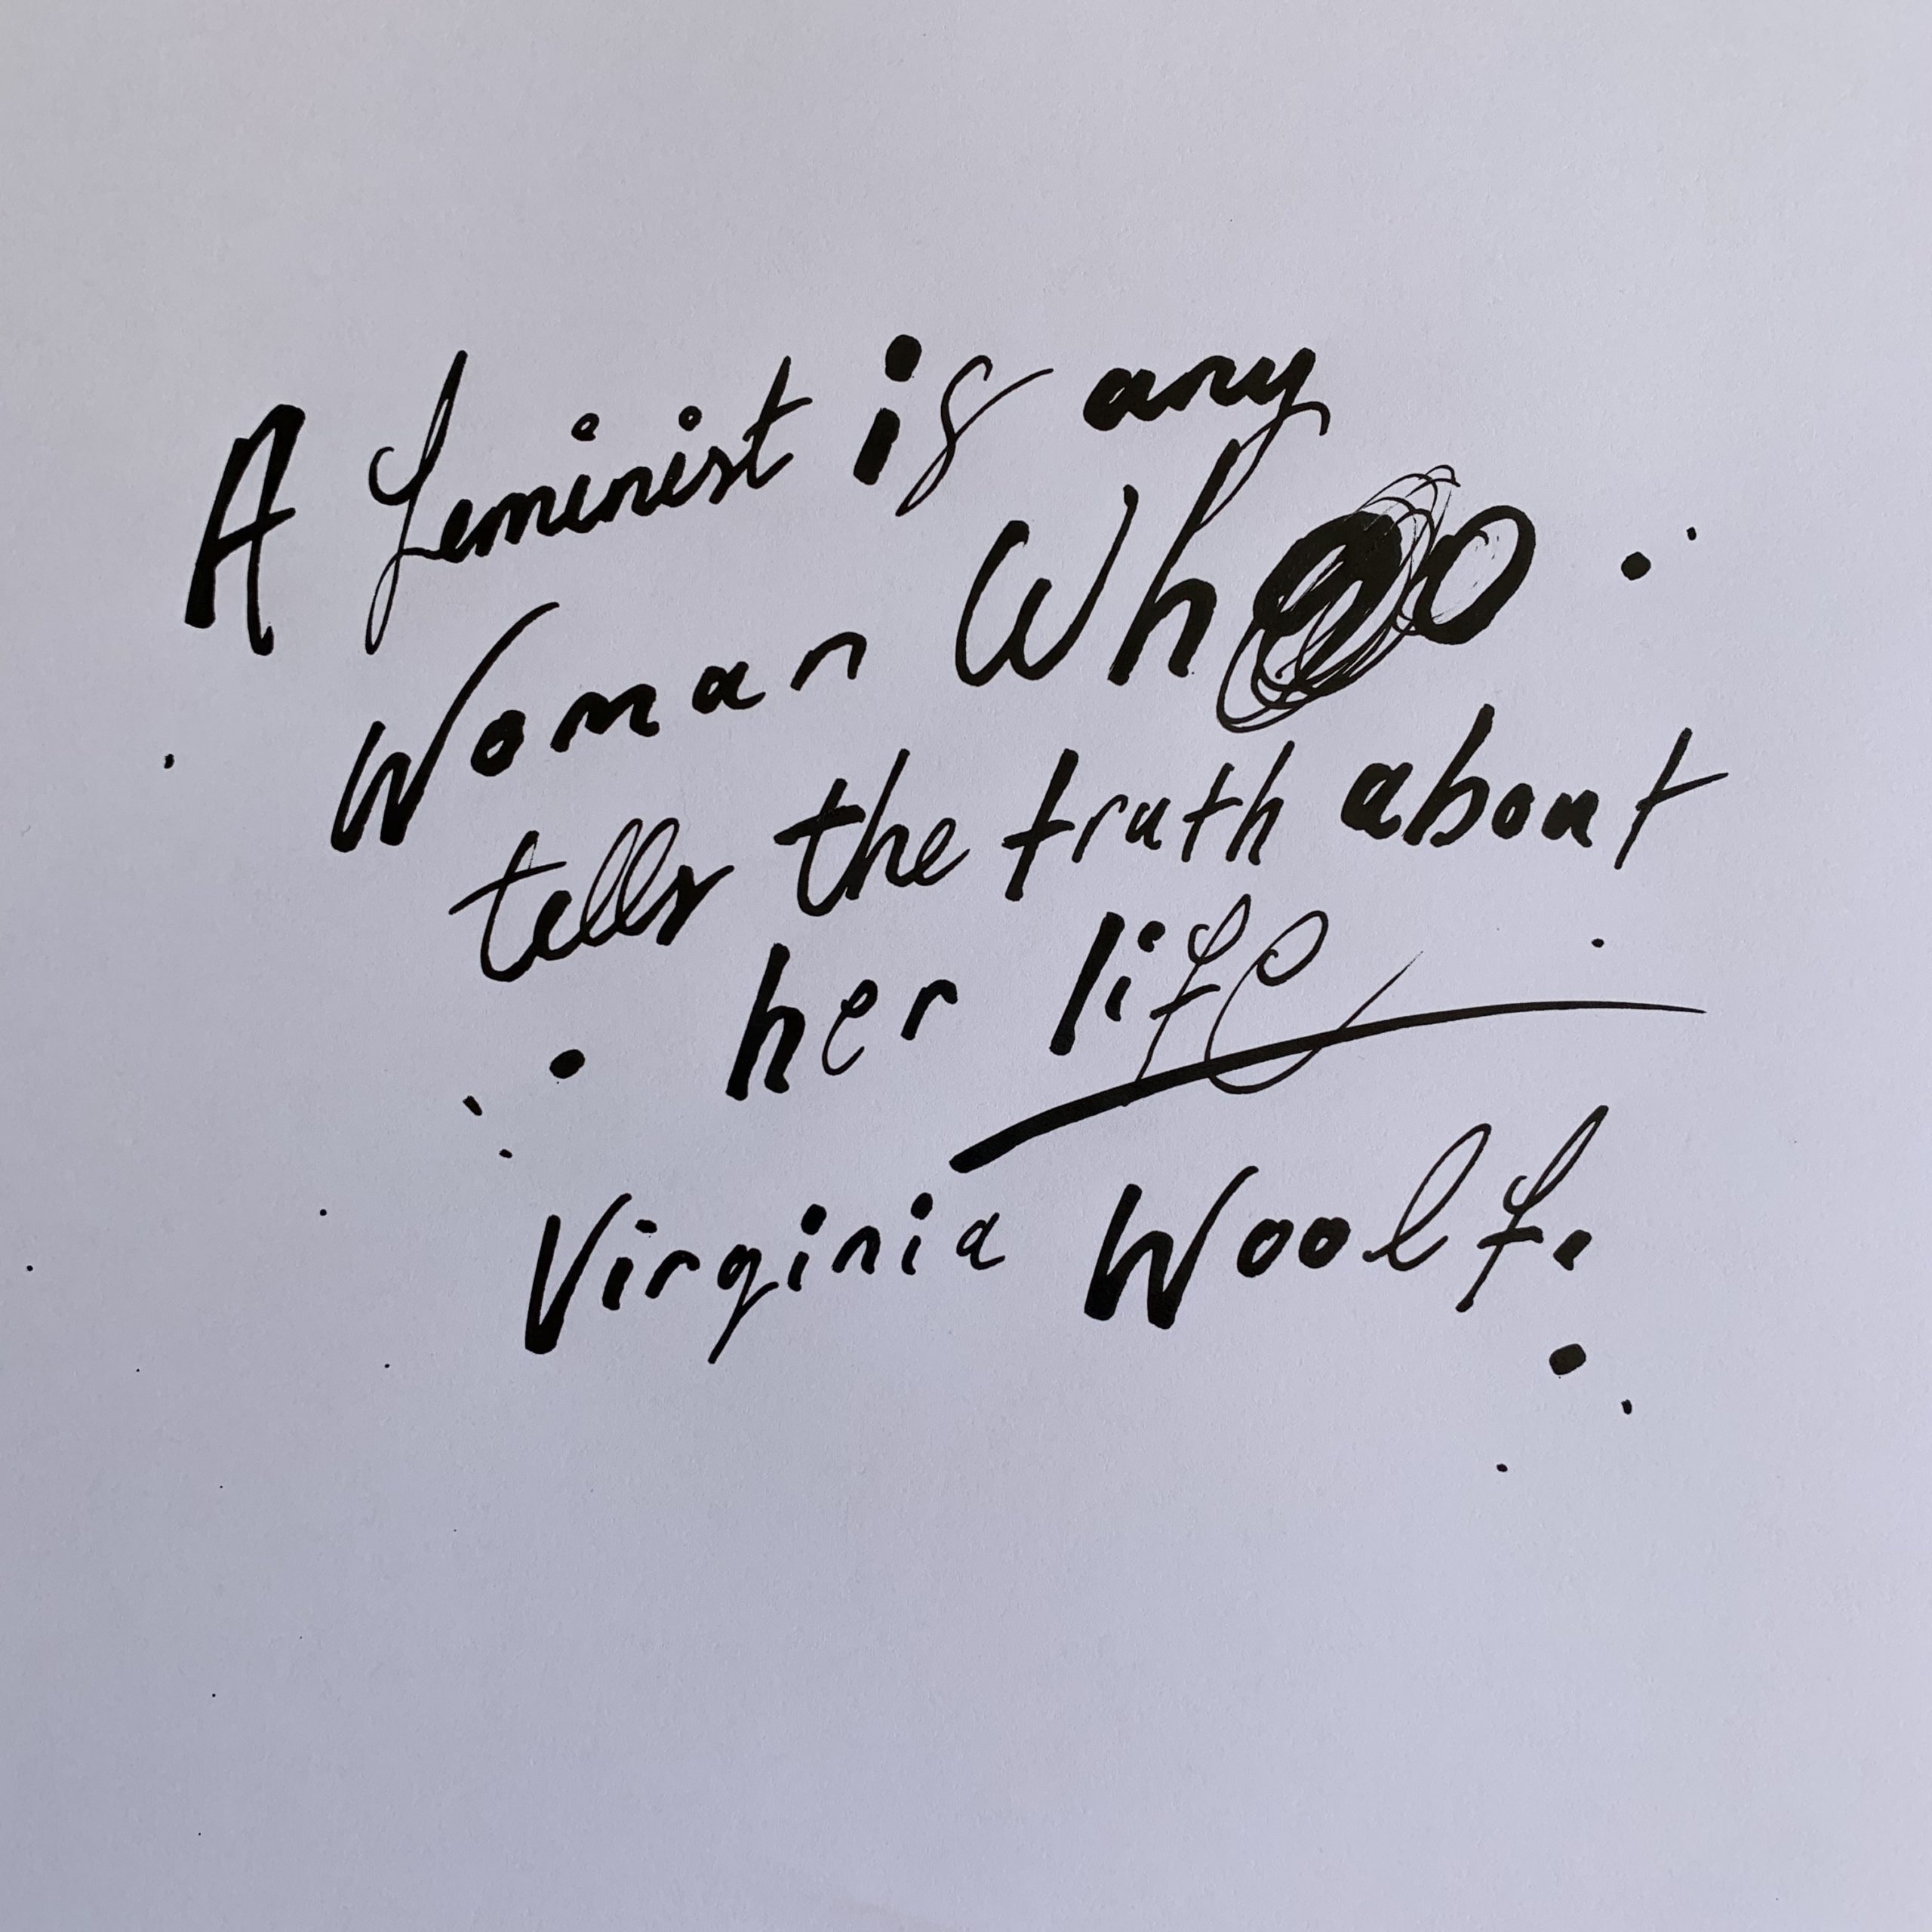 A feminist is any
Woman Who
tells the truth about
her life
Virginia Woolfe